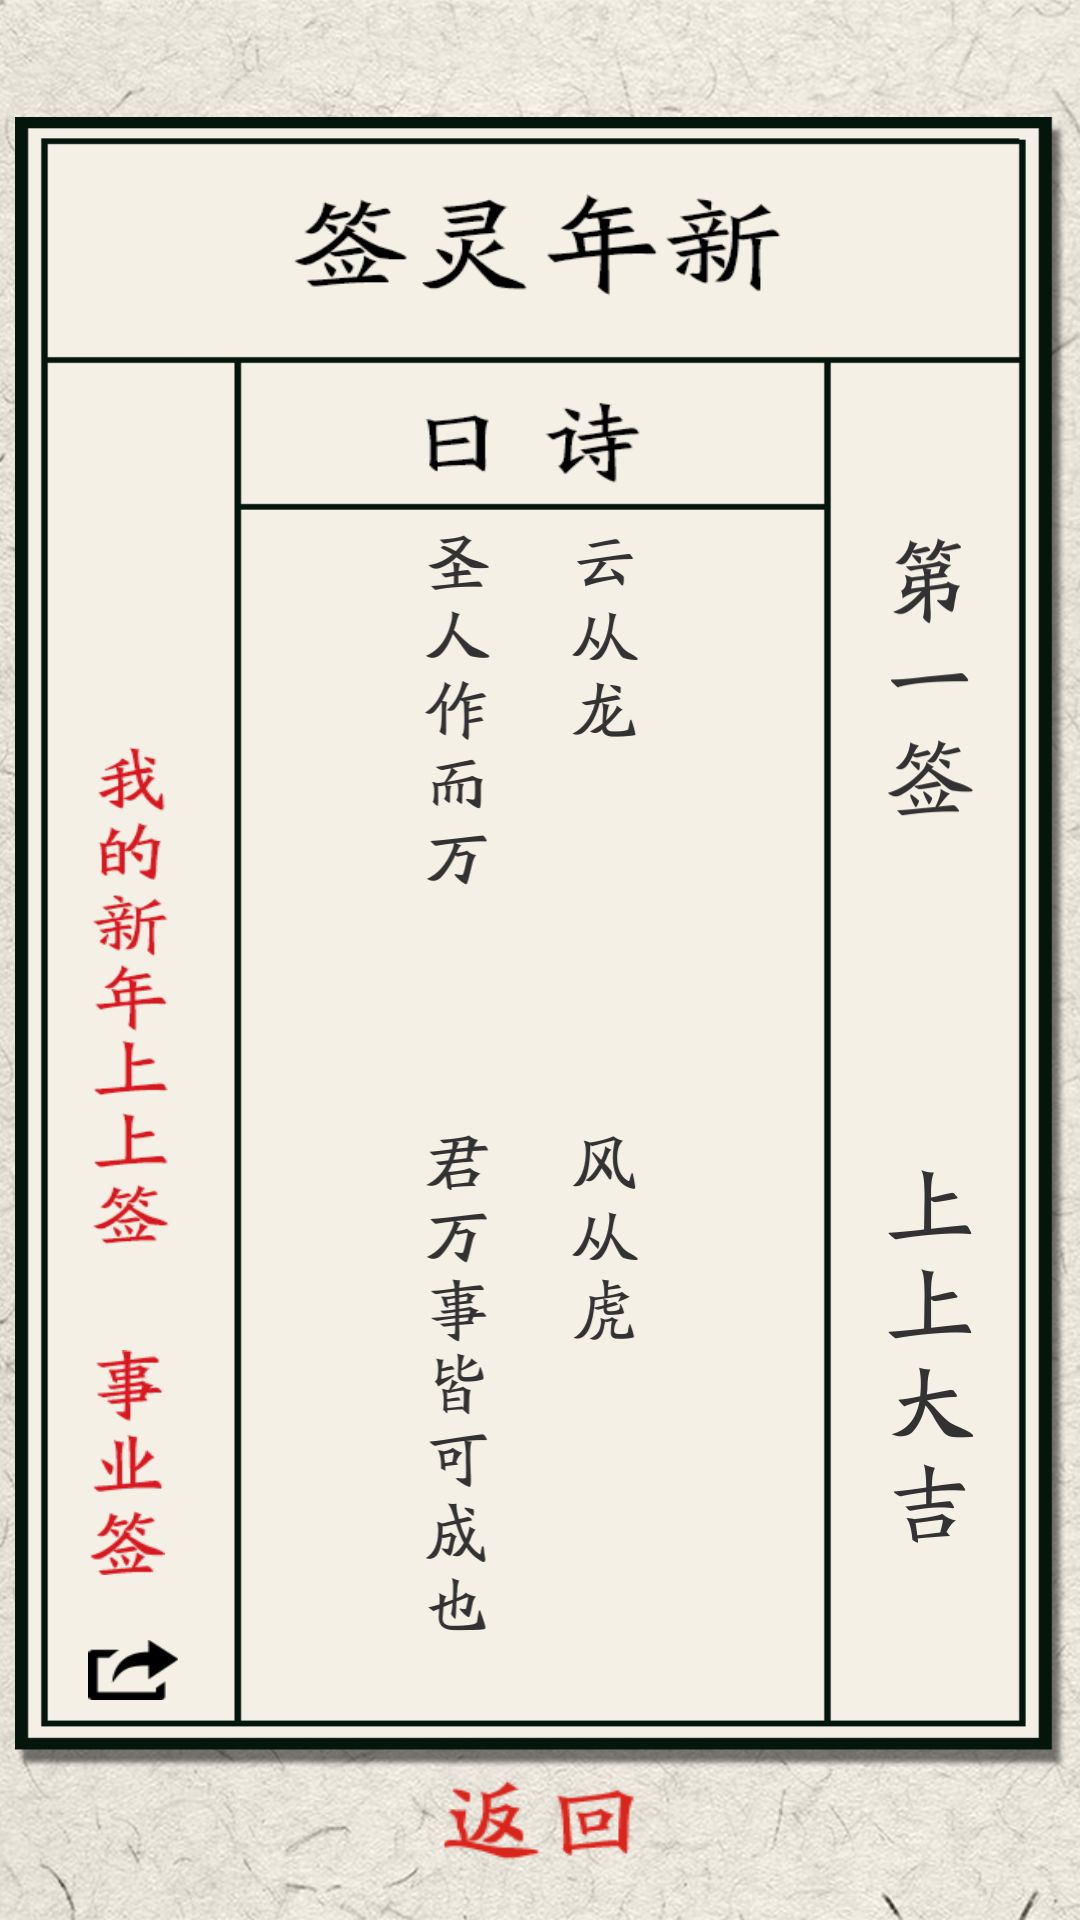 新年灵签
第一签
上上大吉
诗曰
云从龙
风从虎
圣人作而万
君万事皆可成也
我的新年上上签
事业签
返回